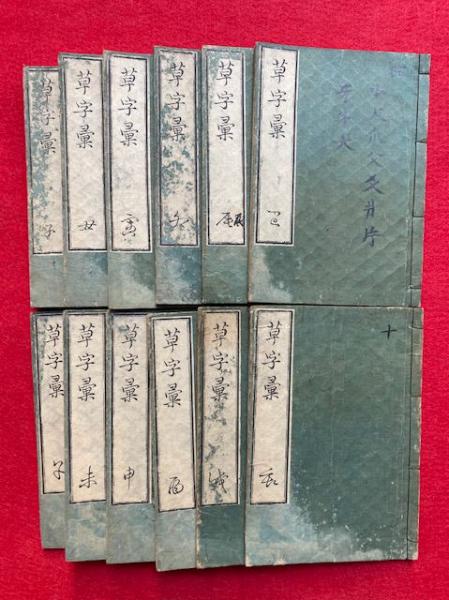 草字彙 子
草字彙 丑
草字彙 寅
草字彙 卯
草字彙 辰
草字彙 巳
草字彙 午
草字彙 未
草字彙 申
草字彙 酉
草字彙 戌
草字彙 亥
十